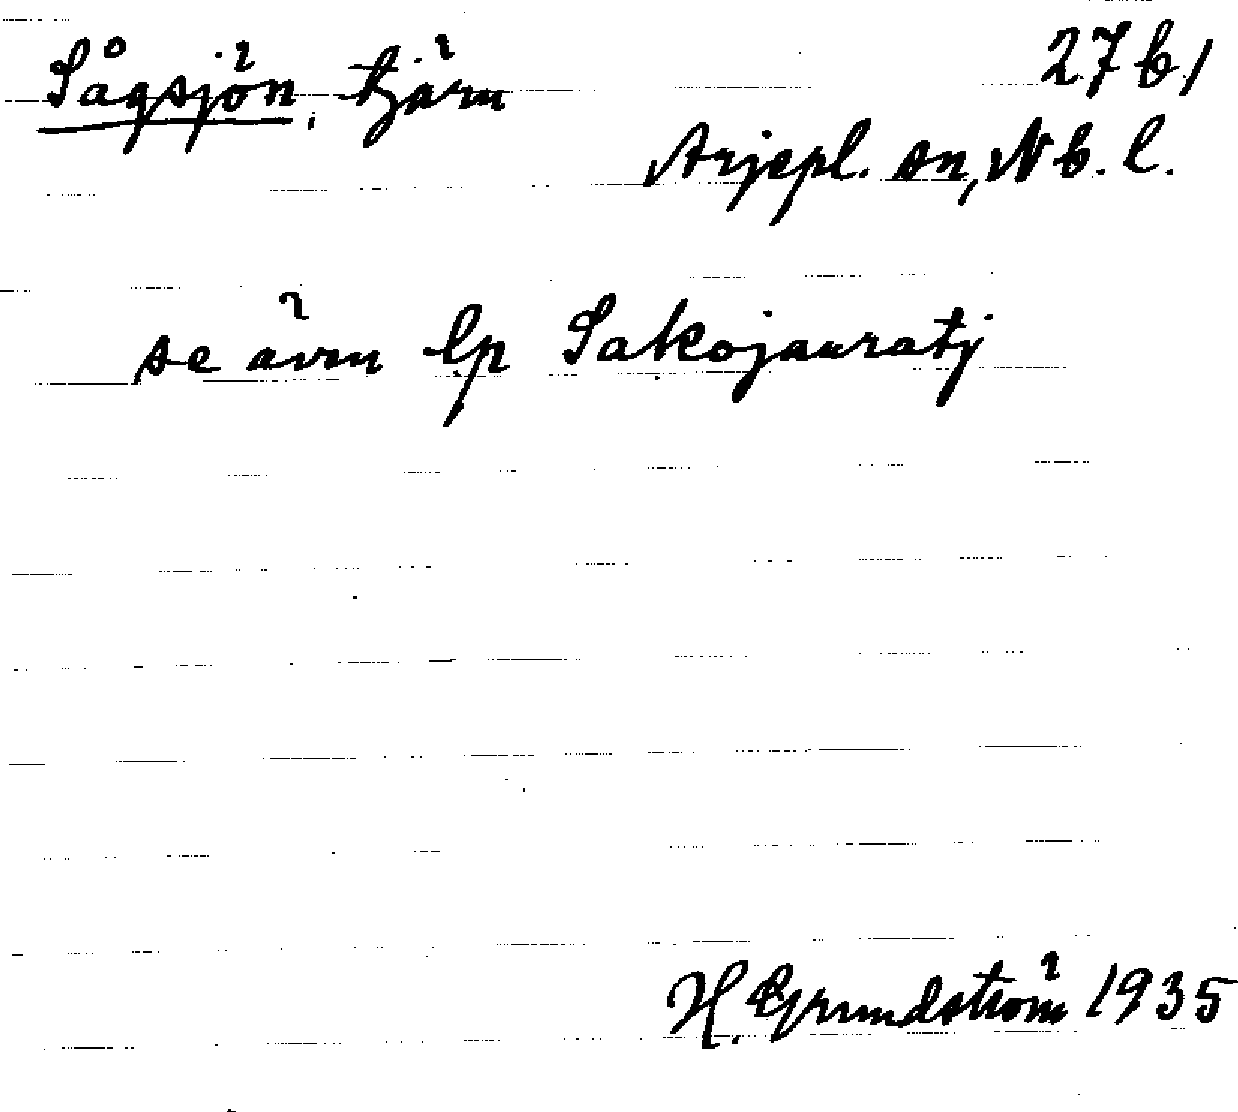 Sågsjön, tjärn
27 b1
Arjepl. sn, Nb. l.
se även lp Sakojauratj
H. Grundström 1935